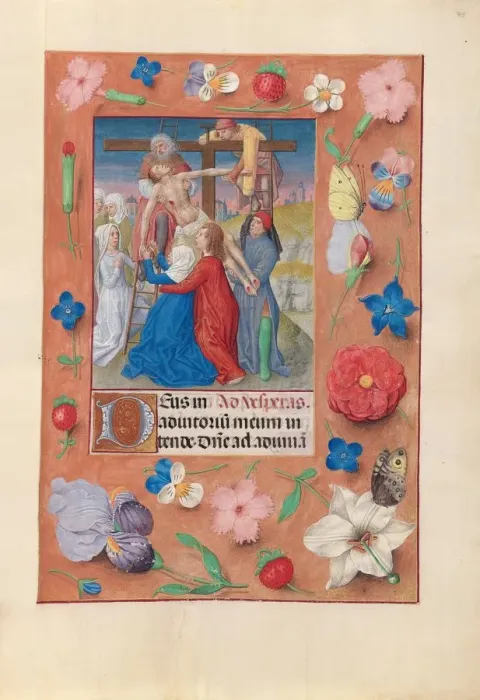 Deus in Ad vesperas.
adiutoriū meum in
tende. Dñe ad adiuuā